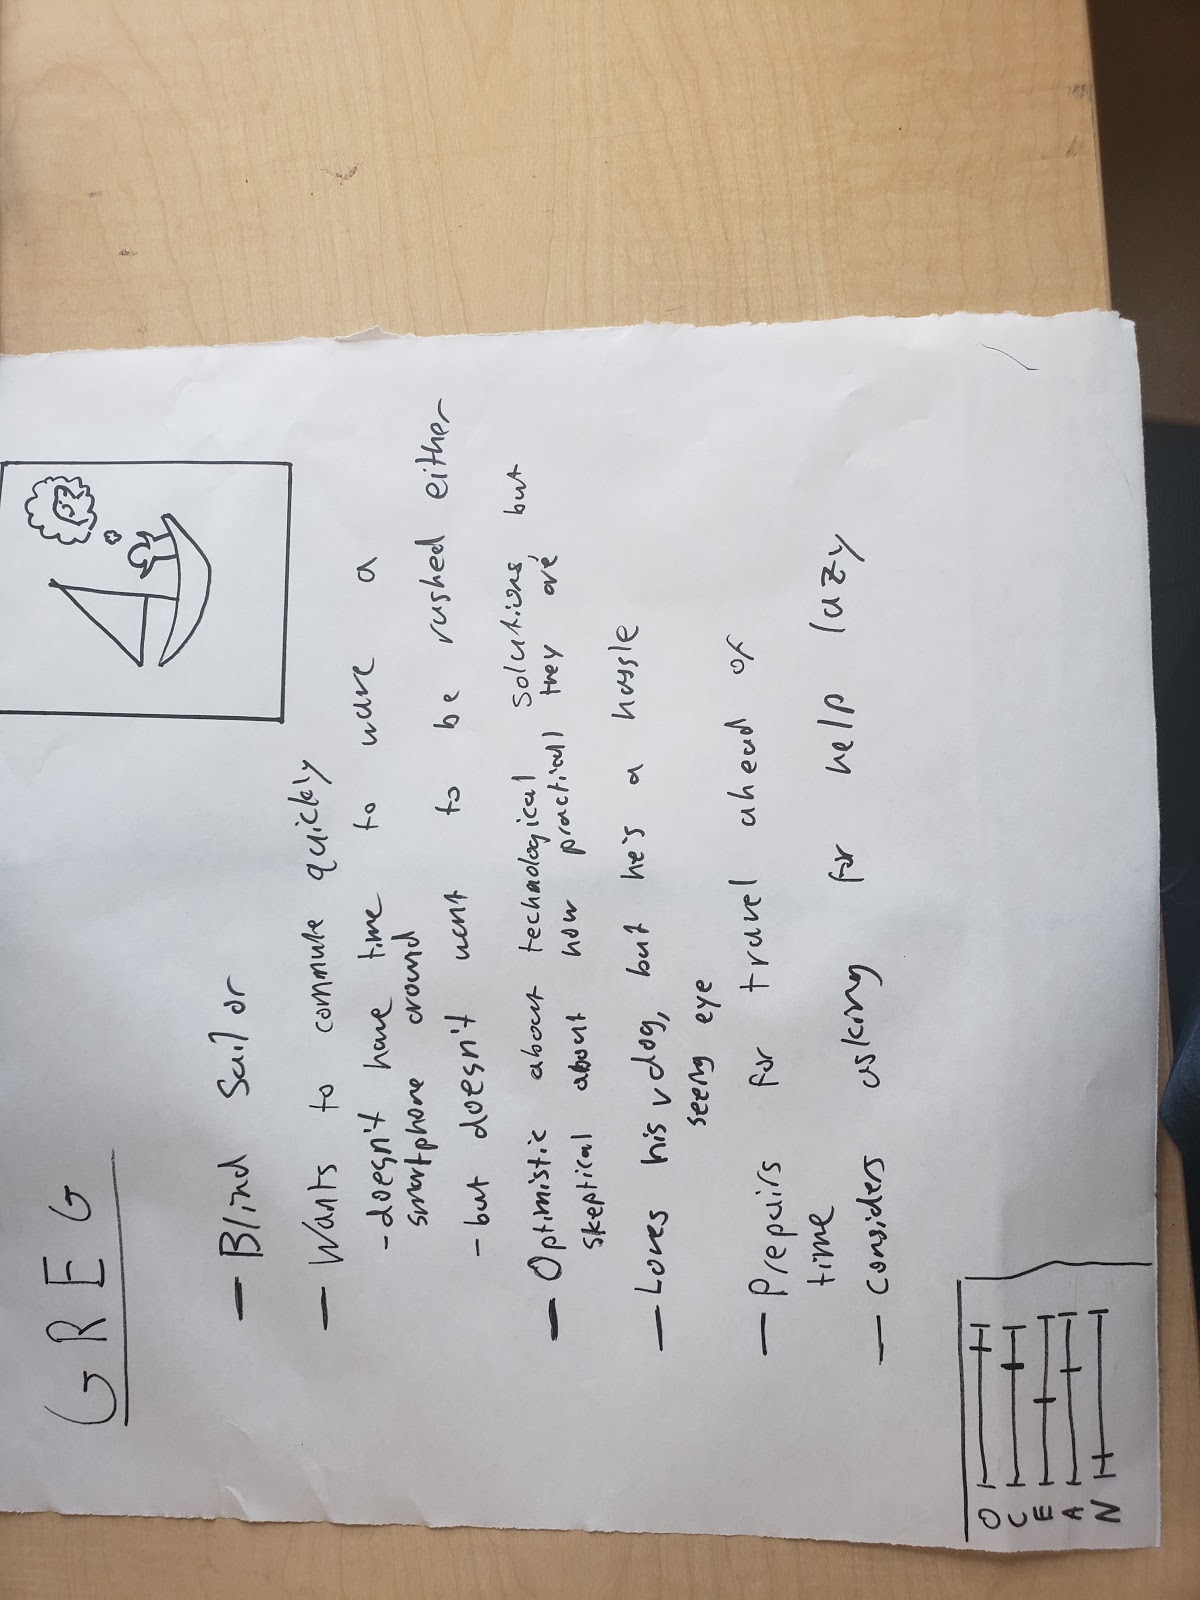 GREG
- Blind Sailor
- Wants to commute quickly
- doesn't have time to wave a
smartphone around
- but doesn't want to be rushed either
- Optimistic about technological solutions, but
skeptical about how practical they are
- Loves his v dog, but he's a hassle
seeing eye
- Prepairs for travel ahead of
time
- considers asking for help lazy
O
C
E
A
N